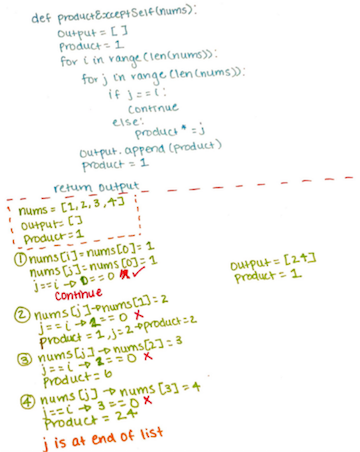 def productExceptSelf(nums):
output = []
product = 1
for i in range(len(nums)):
for j in range(len(nums)):
if j == i:
continue
else:
product *= j
output.append(product)
product = 1
return output
nums = [1,2,3,4]
output = []
product = 1
① nums[i] = nums[0] = 1
nums[j] = nums[0] = 1
j == i → 0 == 0 ✓
continue
② nums[j] → nums[1] = 2
j == i → 1 == 0 x
product = 1, j = 2 → product = 2
③ nums[j] → nums[2] = 3
j == i → 2 == 0 x
product = 6
④ nums[j] → nums[3] = 4
j == i → 3 == 0 x
product = 24
j is at end of list
output = [24]
product = 1